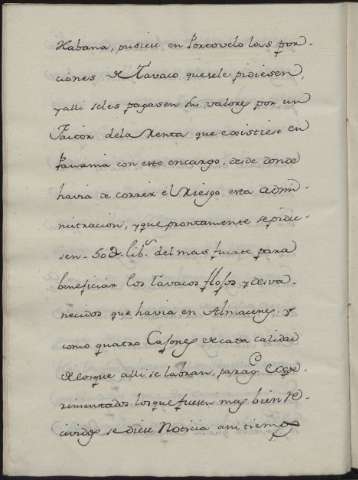 Habana, pusiese en Portovelo las por-
ciones de Tavaco que sele pidiesen
y alli se les pagasen sus valores por un
Factor dela Renta que existiese en
Panamá con este encargo. desde donde
havia de correr el Riesgo esta Admi-
nistracion, y que prontamente se pidie-
sen 50 lib.s del mas fuerte para
beneficiar los tavacos flofos y desva-
necidos que havia en Almacenes, y
como quatro Cajones de cada calidad
de los que alli se labran, para q.e espe-
rimentados los que fuesen mas bien re-
civido se diese Noticia a ntiempo